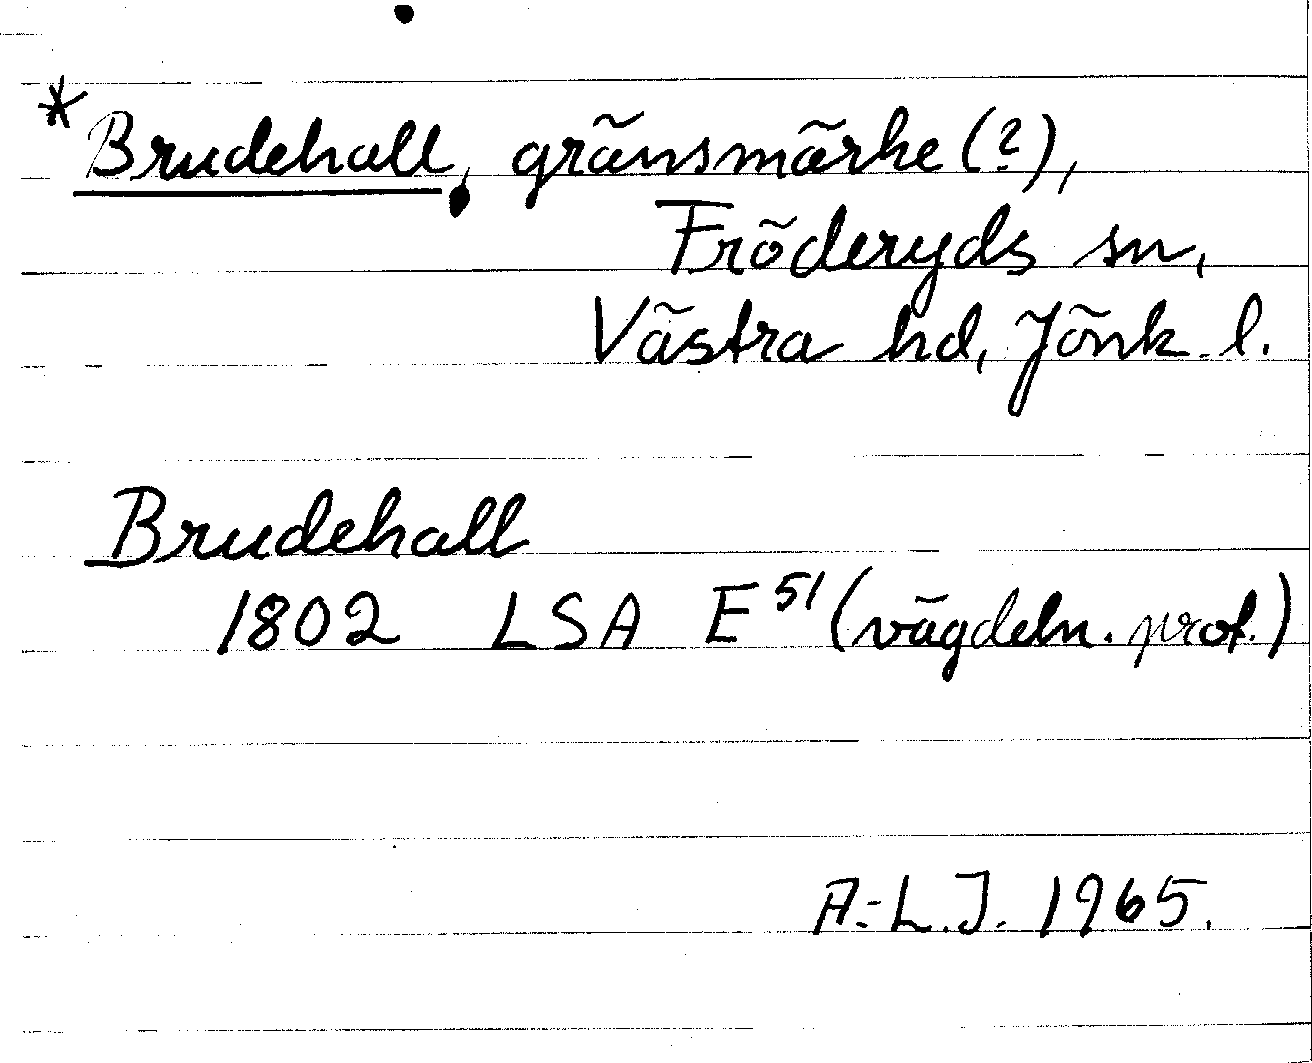 *Brudehall, gränsmärke (?),
Fröderyds sn,
Västra hd, Jönk. l.
Brudehall
1802 LSA E⁵¹ (vägdeln. prot.)
A.-L.J. 1965.